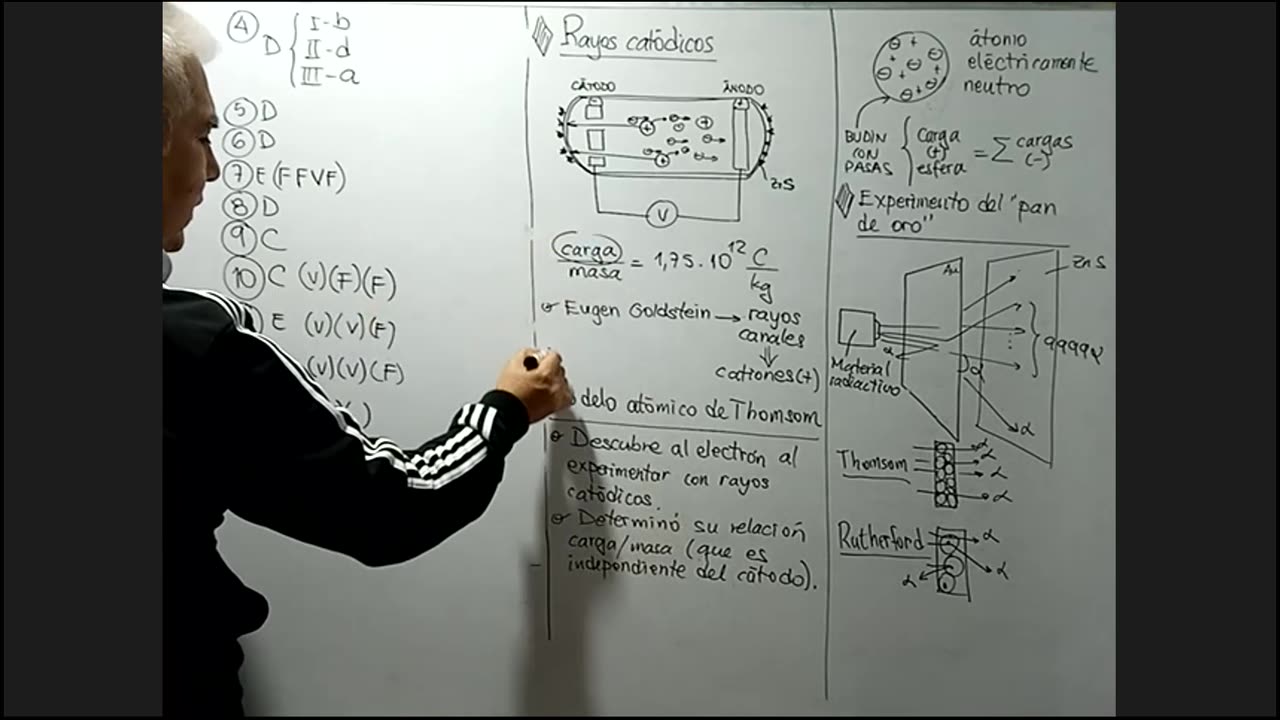 ④ D { I-b
II-d
III-a
⑤ D
⑥ D
⑦ E (FFVF)
⑧ D
⑨ C
⑩ C (V)(F)(F)
E (V)(V)(F)
(V)(V)(F)
Rayos catódicos
CÁTODO
ÁNODO
ZnS
V
carga
masa
= 1,75 . 10¹² C
kg
Eugen Goldstein → rayos
canales
⇓
cationes(+)
delo atómico de Thomsom
Descubre al electrón al
experimentar con rayos
catódicos.
Determinó su relación
carga/masa (que es
independiente del cátodo).
átomo
eléctricamente
neutro
BUDIN
CON
PASAS
{ Carga
(+)
esfera
= Σ cargas
(-)
Experimento del "pan
de oro"
Au
ZnS
α
Material
radiactivo
α
α
Thomsom
α
α
α
α
Rutherford
α
α
α